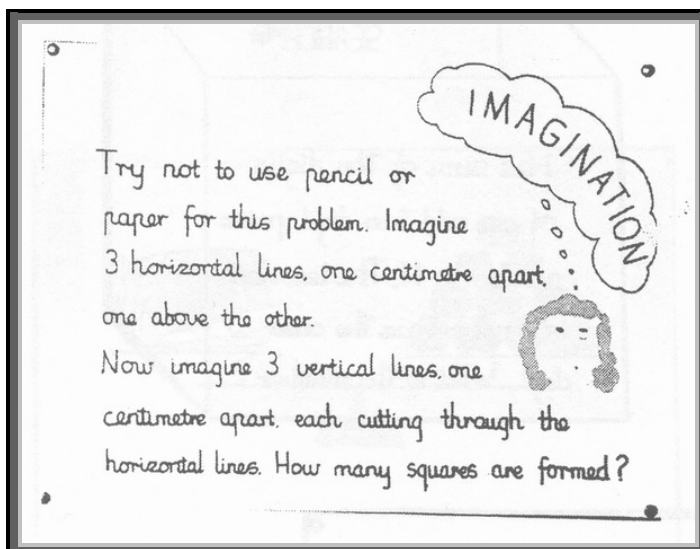 IMAGINATION
Try not to use pencil or
paper for this problem. Imagine
3 horizontal lines, one centimetre apart,
one above the other.
Now imagine 3 vertical lines, one
centimetre apart, each cutting through the
horizontal lines. How many squares are formed?